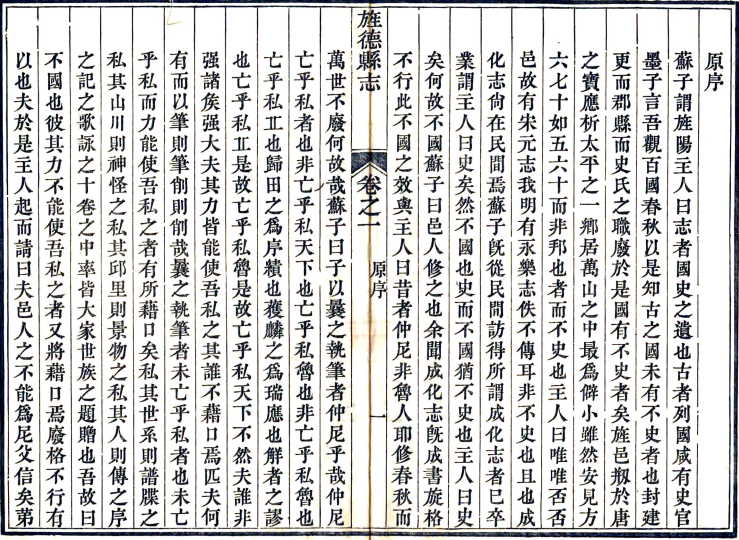 原序
蘇子謂旌陽主人曰志者國史之遺也古者列國咸有史官
墨子言吾觀百國春秋以是知古之國未有不史者也封建
更而郡縣而史氏之職廢於是國有不史者矣旌邑剏於唐
之寶應析太平之一鄉居萬山之中最爲僻小雖然安見方
六七十如五六十而非邦也者而不史也主人曰唯唯否否
邑故有宋元志我明有永樂志佚不傳耳非不史也且也成
化志尙在民間焉蘇子旣從民間訪得所謂成化志者巳卒
業謂主人曰史矣然不國也史而不國猶不史也主人曰史
矣何故不國蘇子曰邑人修之也余聞成化志旣成書旋格
不行此不國之效與主人曰昔者仲尼非魯人耶修春秋而
旌德縣志
卷之一
原序
一
萬世不廢何故哉蘇子曰子以曩之執筆者仲尼乎哉仲尼
亡乎私者也非亡乎私天下也亡乎私魯也非亡乎私魯也
亡乎私丠也歸田之爲序績也獲麟之爲瑞應也觧者之謬
也亡乎私丠是故亡乎私魯是故亡乎私天下不然夫誰非
强諸侯强大夫其力皆能使吾私之其誰不藉口焉匹夫何
有而以筆則筆削則削哉曩之執筆者未亡乎私者也未亡
乎私而力能使吾私之者有所藉口矣私其世系則譜牒之
私其山川則神怪之私其邱里則景物之私其人則傳之序
之記之歌詠之十卷之中率皆大家世族之題贈也吾故曰
不國也彼其力不能使吾私之者又將藉口焉廢格不行有
以也夫於是主人起而請曰夫邑人之不能爲尼父信矣第